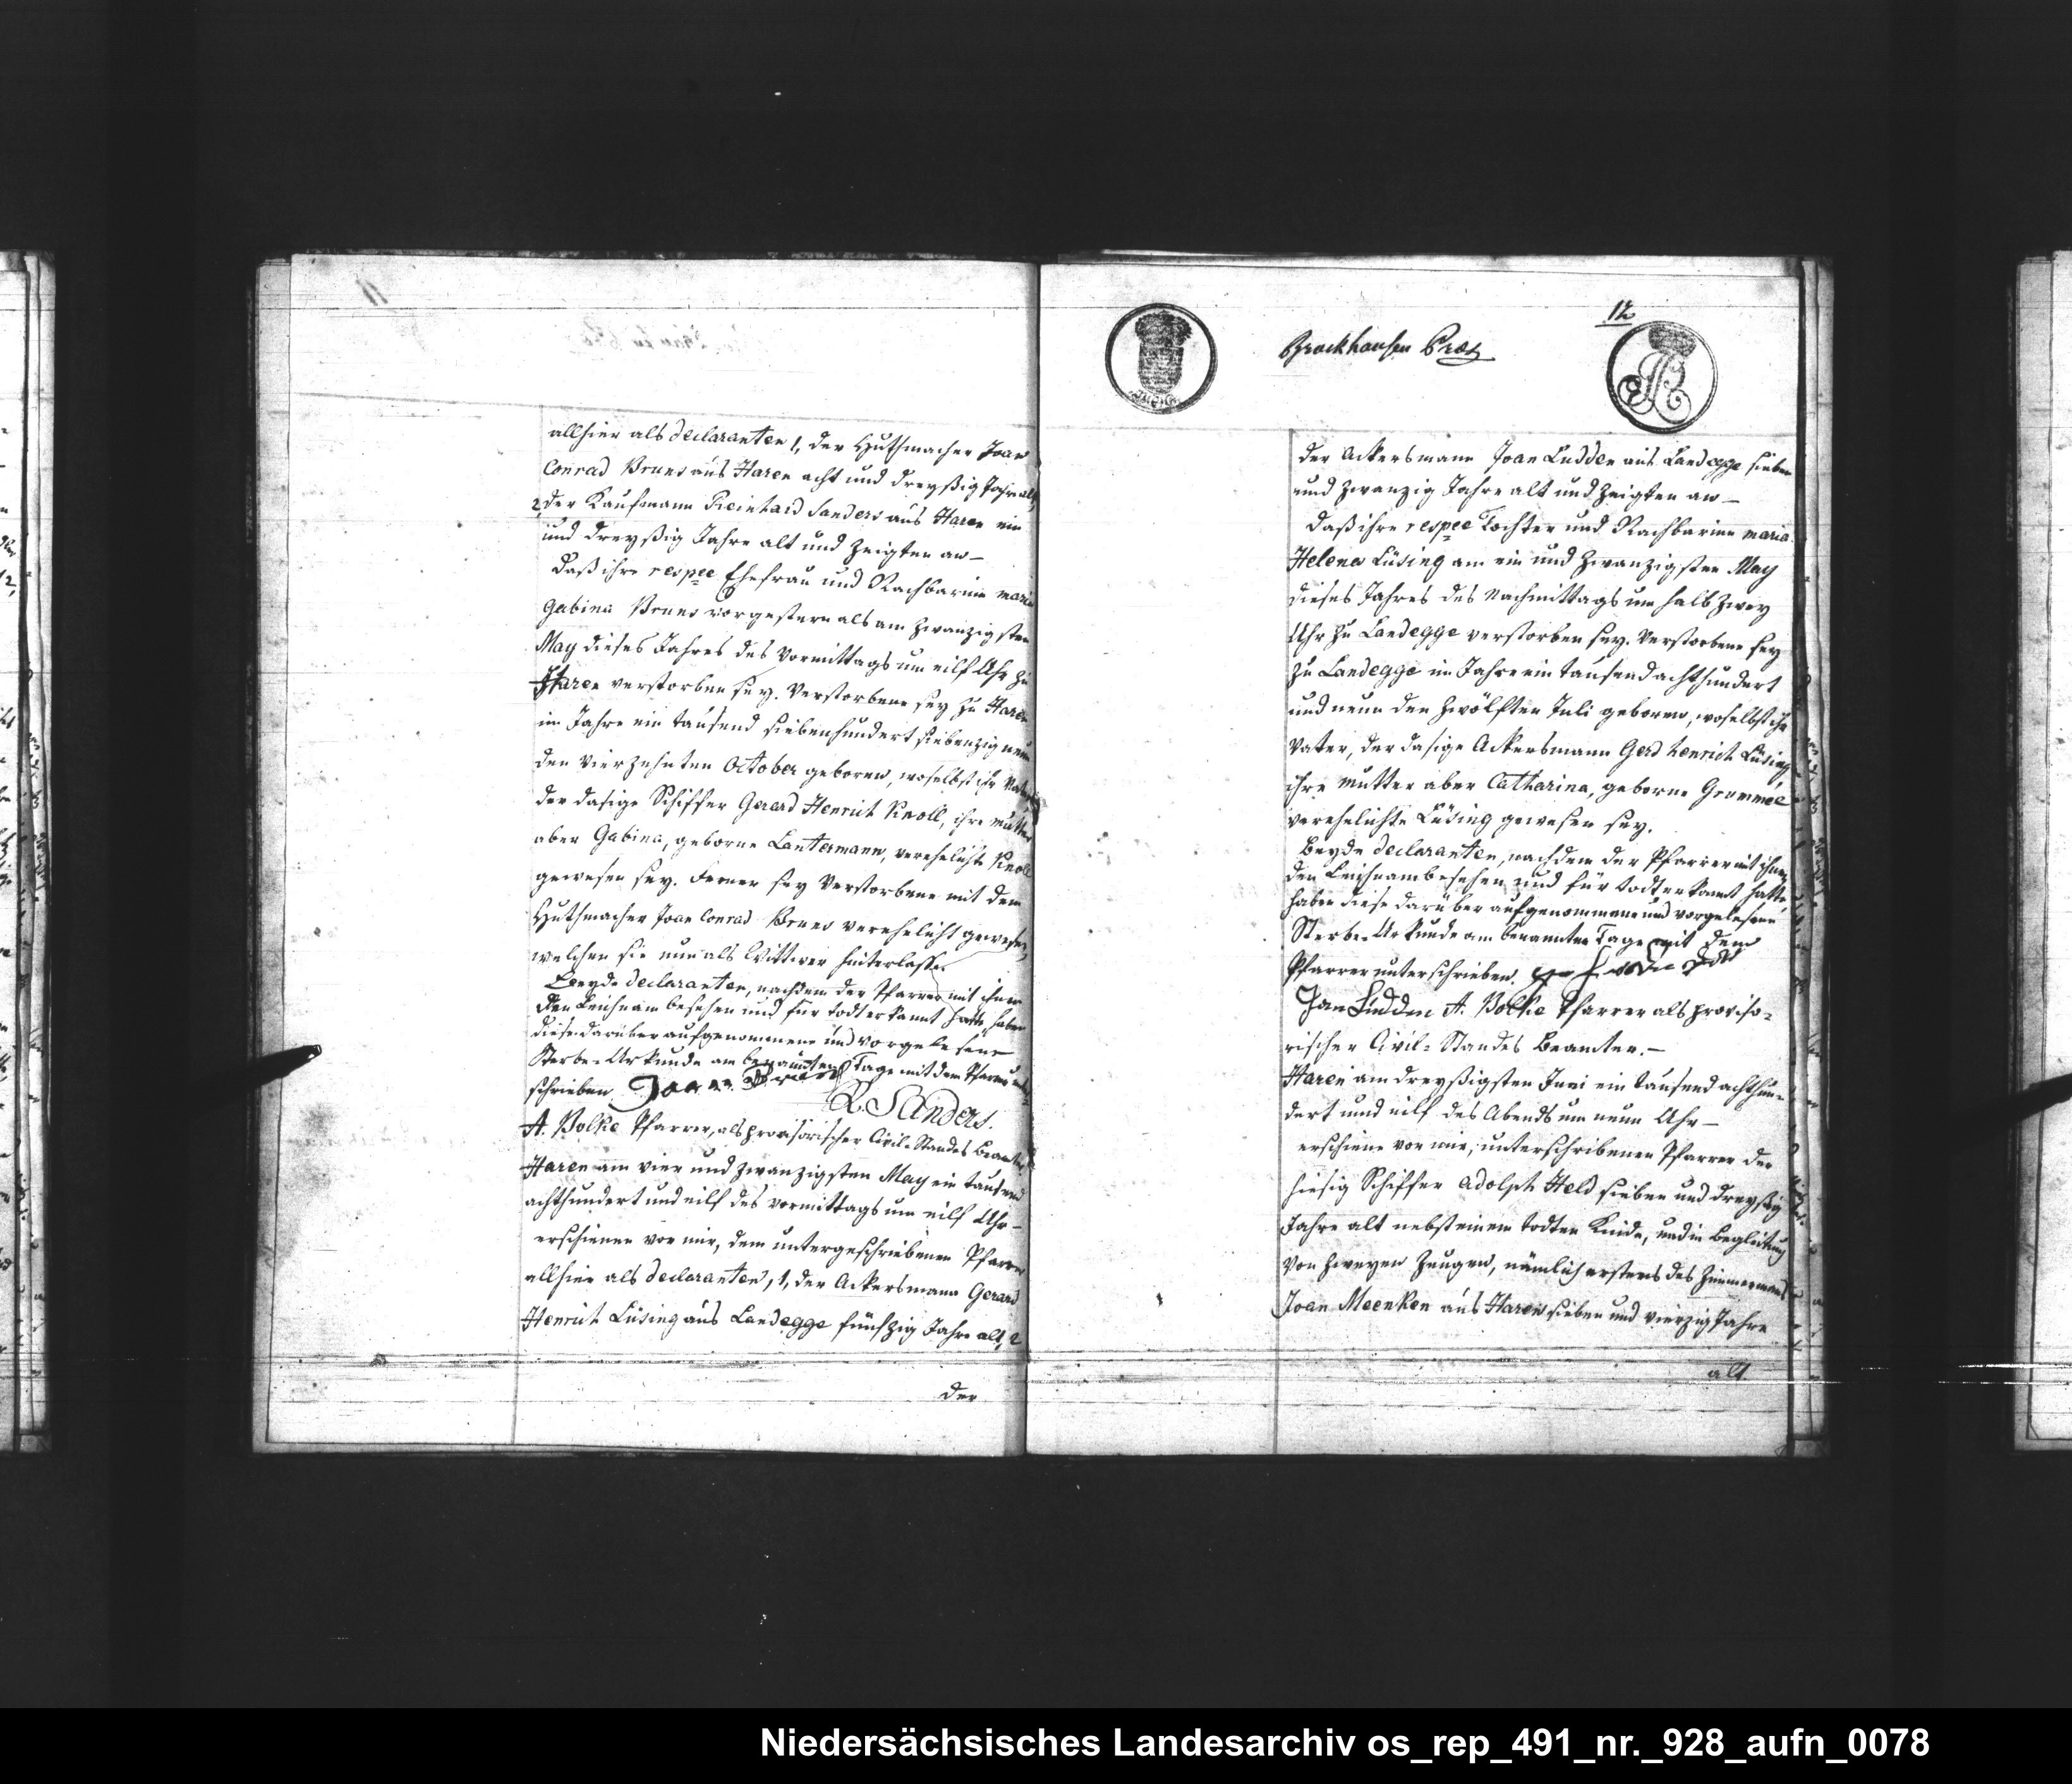 allhier als declaranten 1, der Huthmacher Joan
Conrad Bruns aus Haren acht und dreyßig Jahr alt,
2, der Kaufmann Reinhard Sanders aus Haren ein
und dreyßig Jahre alt und zeigten an –
daß ihre respee Ehefrau und Nachbarinn maria
Gabina Bruns vorgestern als am zwanzigsten
May dieses Jahres des vormittags um eilf Uhr zu
Haren verstorben sey. Verstorbene sey zu Haren
im Jahre ein tausend siebenhundert siebenzig neun
den vierzehnten October geboren, woselbst ihr Vater
der dasige Schiffer Gerard Henrich Knoll, ihre mutter
aber Gabina, geborne Lantermann, verehelichte Knoll
gewesen sey. Ferner sey Verstorbene mit dem
Huthmacher Joan Conrad Bruns verehelicht gewesen,
welchen sie nun als Wittwer hinterlasse.
Beyde declaranten, nachdem der Pfarrer mit ihnen
den Leichnam besehen und für todt erkannt hatte, haben
diese darüber aufgenommene und vorgelesene
Sterbe-Urkunde am benannten Tage mit dem Pfarrer unter
schrieben. Joann Bruns
R. Sanders.
A. Bolke Pfarrer, als provisorischer Civil-Standes Beamter
Haren am vier und zwanzigsten May ein tausend
achthundert und eilf des vormittags um eilf Uhr –
erschienen vor mir, dem untergeschriebenen Pfarrer
allhier als declaranten, 1, der Ackersmann Gerard
Henrich Lüsing aus Landegge fünfzig Jahre alt, 2
der
12
Brockhausen Præs
der Ackersmann Joan Ludden aus Landegge sieben
und zwanzig Jahre alt und zeigten an –
daß ihre respee Tochter und Nachbarinn maria
Helena Lüsing am ein und zwanzigsten May
dieses Jahres des Nachmittags um halb zwey
Uhr zu Landegge verstorben sey. Verstorbene sey
zu Landegge im Jahre ein tausend achthundert
und neun den zwölften Juli geboren, woselbst ihr
Vater, der dasige Ackersmann Gerd henrich Lüsing,
ihre mutter aber Catharina, geborne Grummel
verehelichte Lüsing gewesen sey.
Beyde declaranten, nachdem der Pfarrer mit ihnen
den Leichnam besehen und für todt erkannt hatte,
haben diese darüber aufgenommene und vorgelesene
Sterbe-Urkunde am benannten Tage mit dem
Pfarrer unterschrieben.
Jan Lüdden A. Bolke Pfarrer als proviso-
rischer Civil-Standes Beamter. –
Haren am dreyßigsten Juni ein tausend achthun-
dert und eilf des Abends um neun Uhr –
erschiene vor mir, unterschriebenen Pfarrer der
hiesig Schiffer Adolph Held sieben und dreyßig
Jahre alt nebst einem todten Kinde, und in Begleitung
von zweyen Zeugen, nämlich erstens des Zimmermans
Joan Meenken aus Haren sieben und vierzig Jahre
alt
Niedersächsisches Landesarchiv os_rep_491_nr._928_aufn_0078